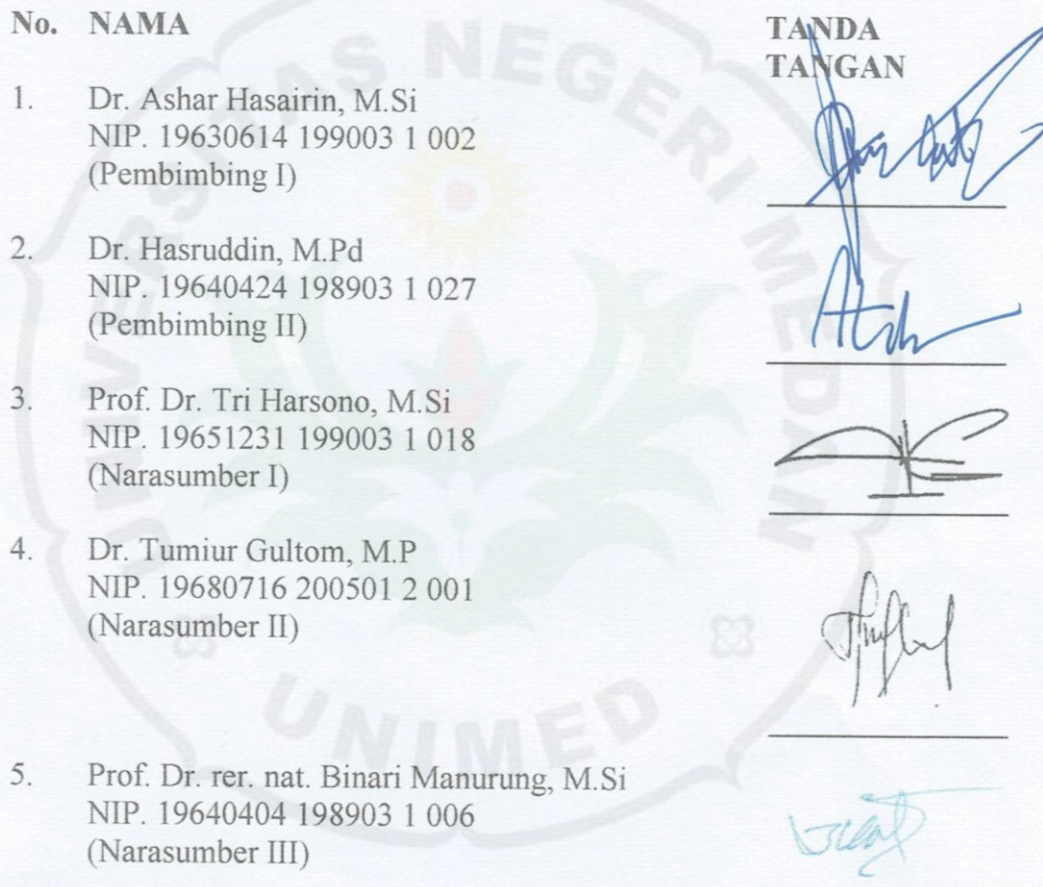 No. NAMA TANDA
TANGAN
1. Dr. Ashar Hasairin, M.Si
NIP. 19630614 199003 1 002
(Pembimbing I)
2. Dr. Hasruddin, M.Pd
NIP. 19640424 198903 1 027
(Pembimbing II)
3. Prof. Dr. Tri Harsono, M.Si
NIP. 19651231 199003 1 018
(Narasumber I)
4. Dr. Tumiur Gultom, M.P
NIP. 19680716 200501 2 001
(Narasumber II)
5. Prof. Dr. rer. nat. Binari Manurung, M.Si
NIP. 19640404 198903 1 006
(Narasumber III)
UNIVERSITAS NEGERI MEDAN
UNIMED